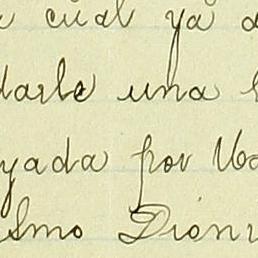 cual ya
darle una
yada por Va
ismo Dioni